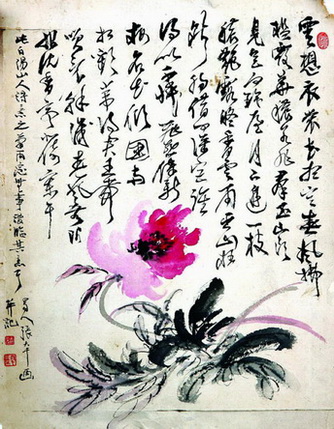 雲想衣裳花想容春風拂
檻露華濃若非群玉山頭
見會向瑤臺月下逢一枝
穠艷露凝香雲雨巫山枉
斷腸借問漢宮誰
得似可憐飛燕倚新
粧名花傾國兩
相歡常得君王帶
笑看解釋春風無限
恨沈香亭北倚闌干
此白陽山人
蜀人張大千画
并記